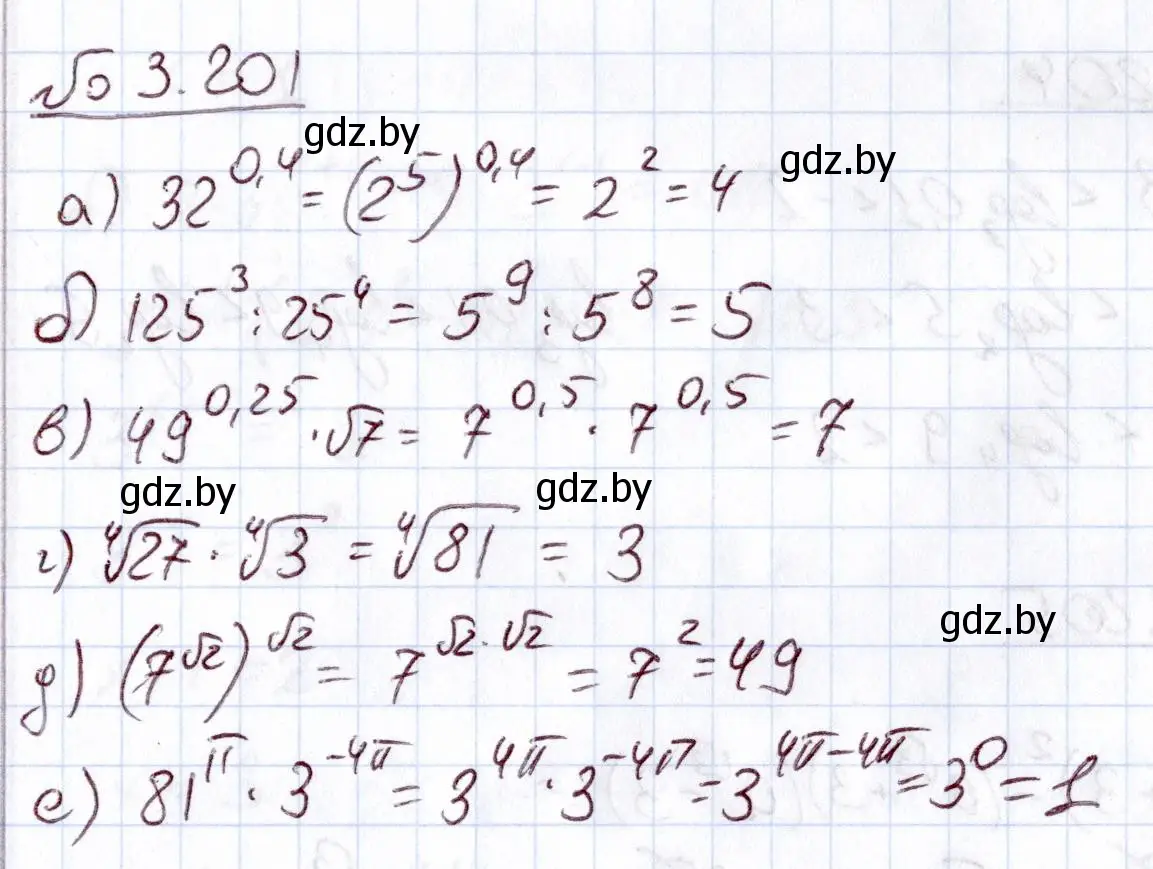 № 3.201
gdz.by
а) 32^{0,4} = (2^5)^{0,4} = 2^2 = 4 gdz.by
б) 125^3 : 25^4 = 5^9 : 5^8 = 5
в) 49^{0,25} · √7 = 7^{0,5} · 7^{0,5} = 7
gdz.by gdz.by
г) ∜27 · ∜3 = ∜81 = 3
gdz.by
д) (7^{√2})^{√2} = 7^{√2·√2} = 7^2 = 49
е) 81^π · 3^{-4π} = 3^{4π} · 3^{-4π} = 3^{4π-4π} = 3^0 = 1